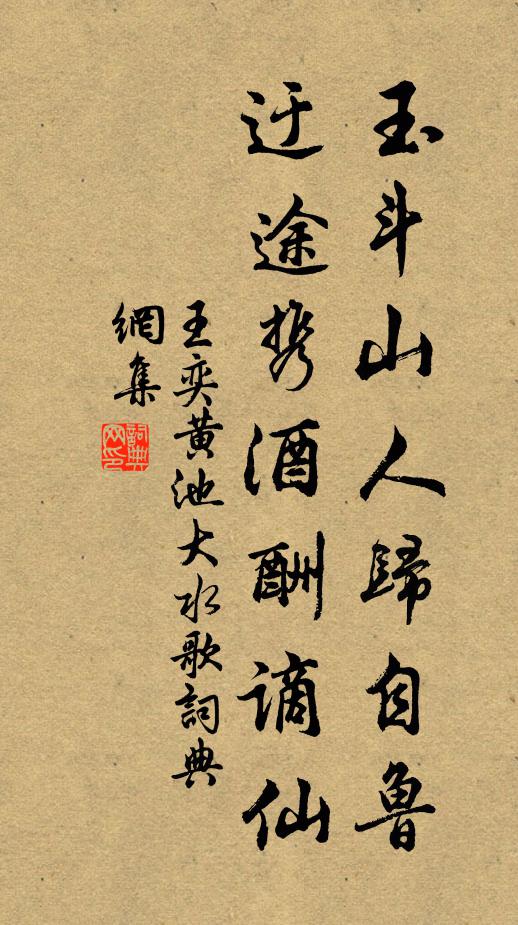 玉斗山人歸自魯
迂途携酒酬謫仙
王奕黄池大水歌詞典
網集
詞典
网印